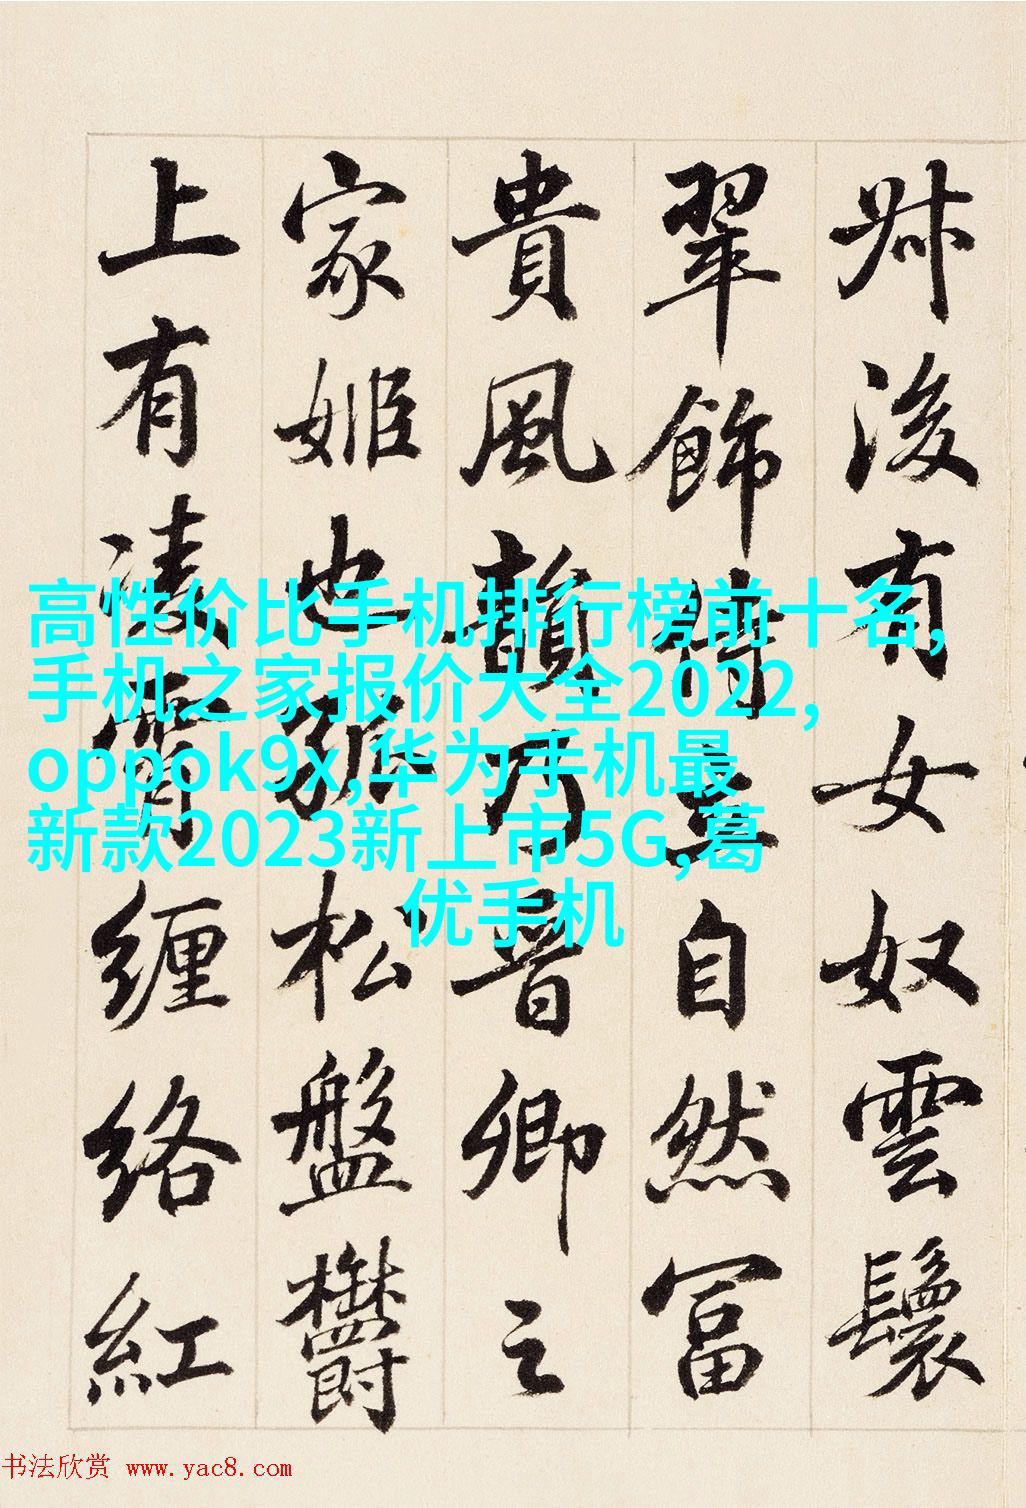 叔後有女奴雲鬟
翠飾侍立自然富
貴風韻乃晉卿之
家姬也孤松盤欝
上有凌霄纏络紅
高性价比手机排行榜前十名,
手机之家报价大全2022,
oppok9x,华为手机最
新款2023新上市5G,葛
优手机
书法欣赏 www.yac8.com